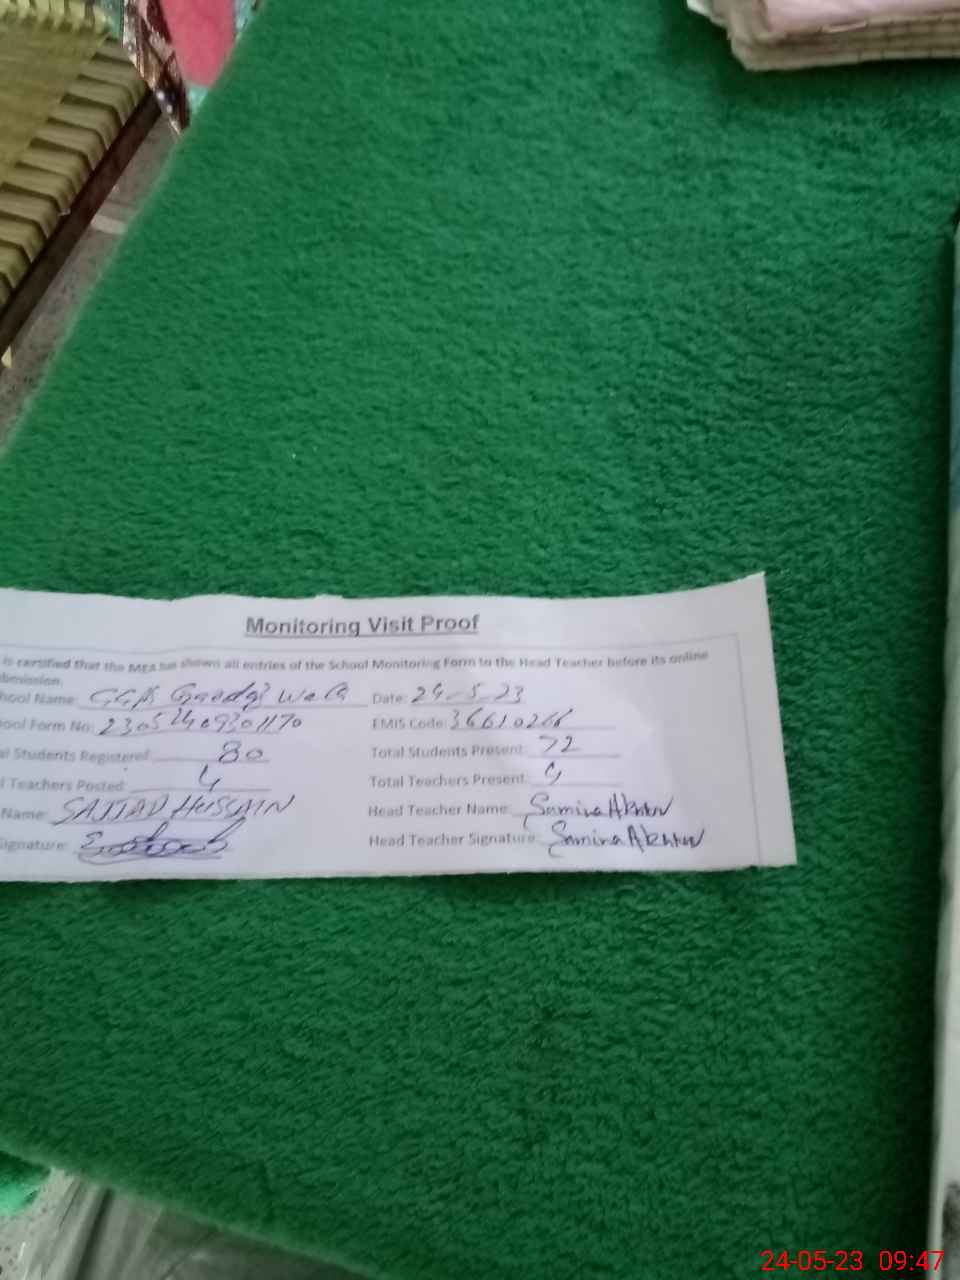 Monitoring Visit Proof
is certified that the MEA has shown all entries of the School Monitoring Form to the Head Teacher before its online
bmission.
hool Name: Date: 24-5-23
ool Form No: 23052409301170 EMIS Code: 36610266
al Students Registered 80 Total Students Present: 72
l Teachers Posted 4 Total Teachers Present: 4
Name: SAJJAD HUSSAIN Head Teacher Name: Samina Akhtar
ignature: Head Teacher Signature: Samina Akhtar
24-05-23 09:47